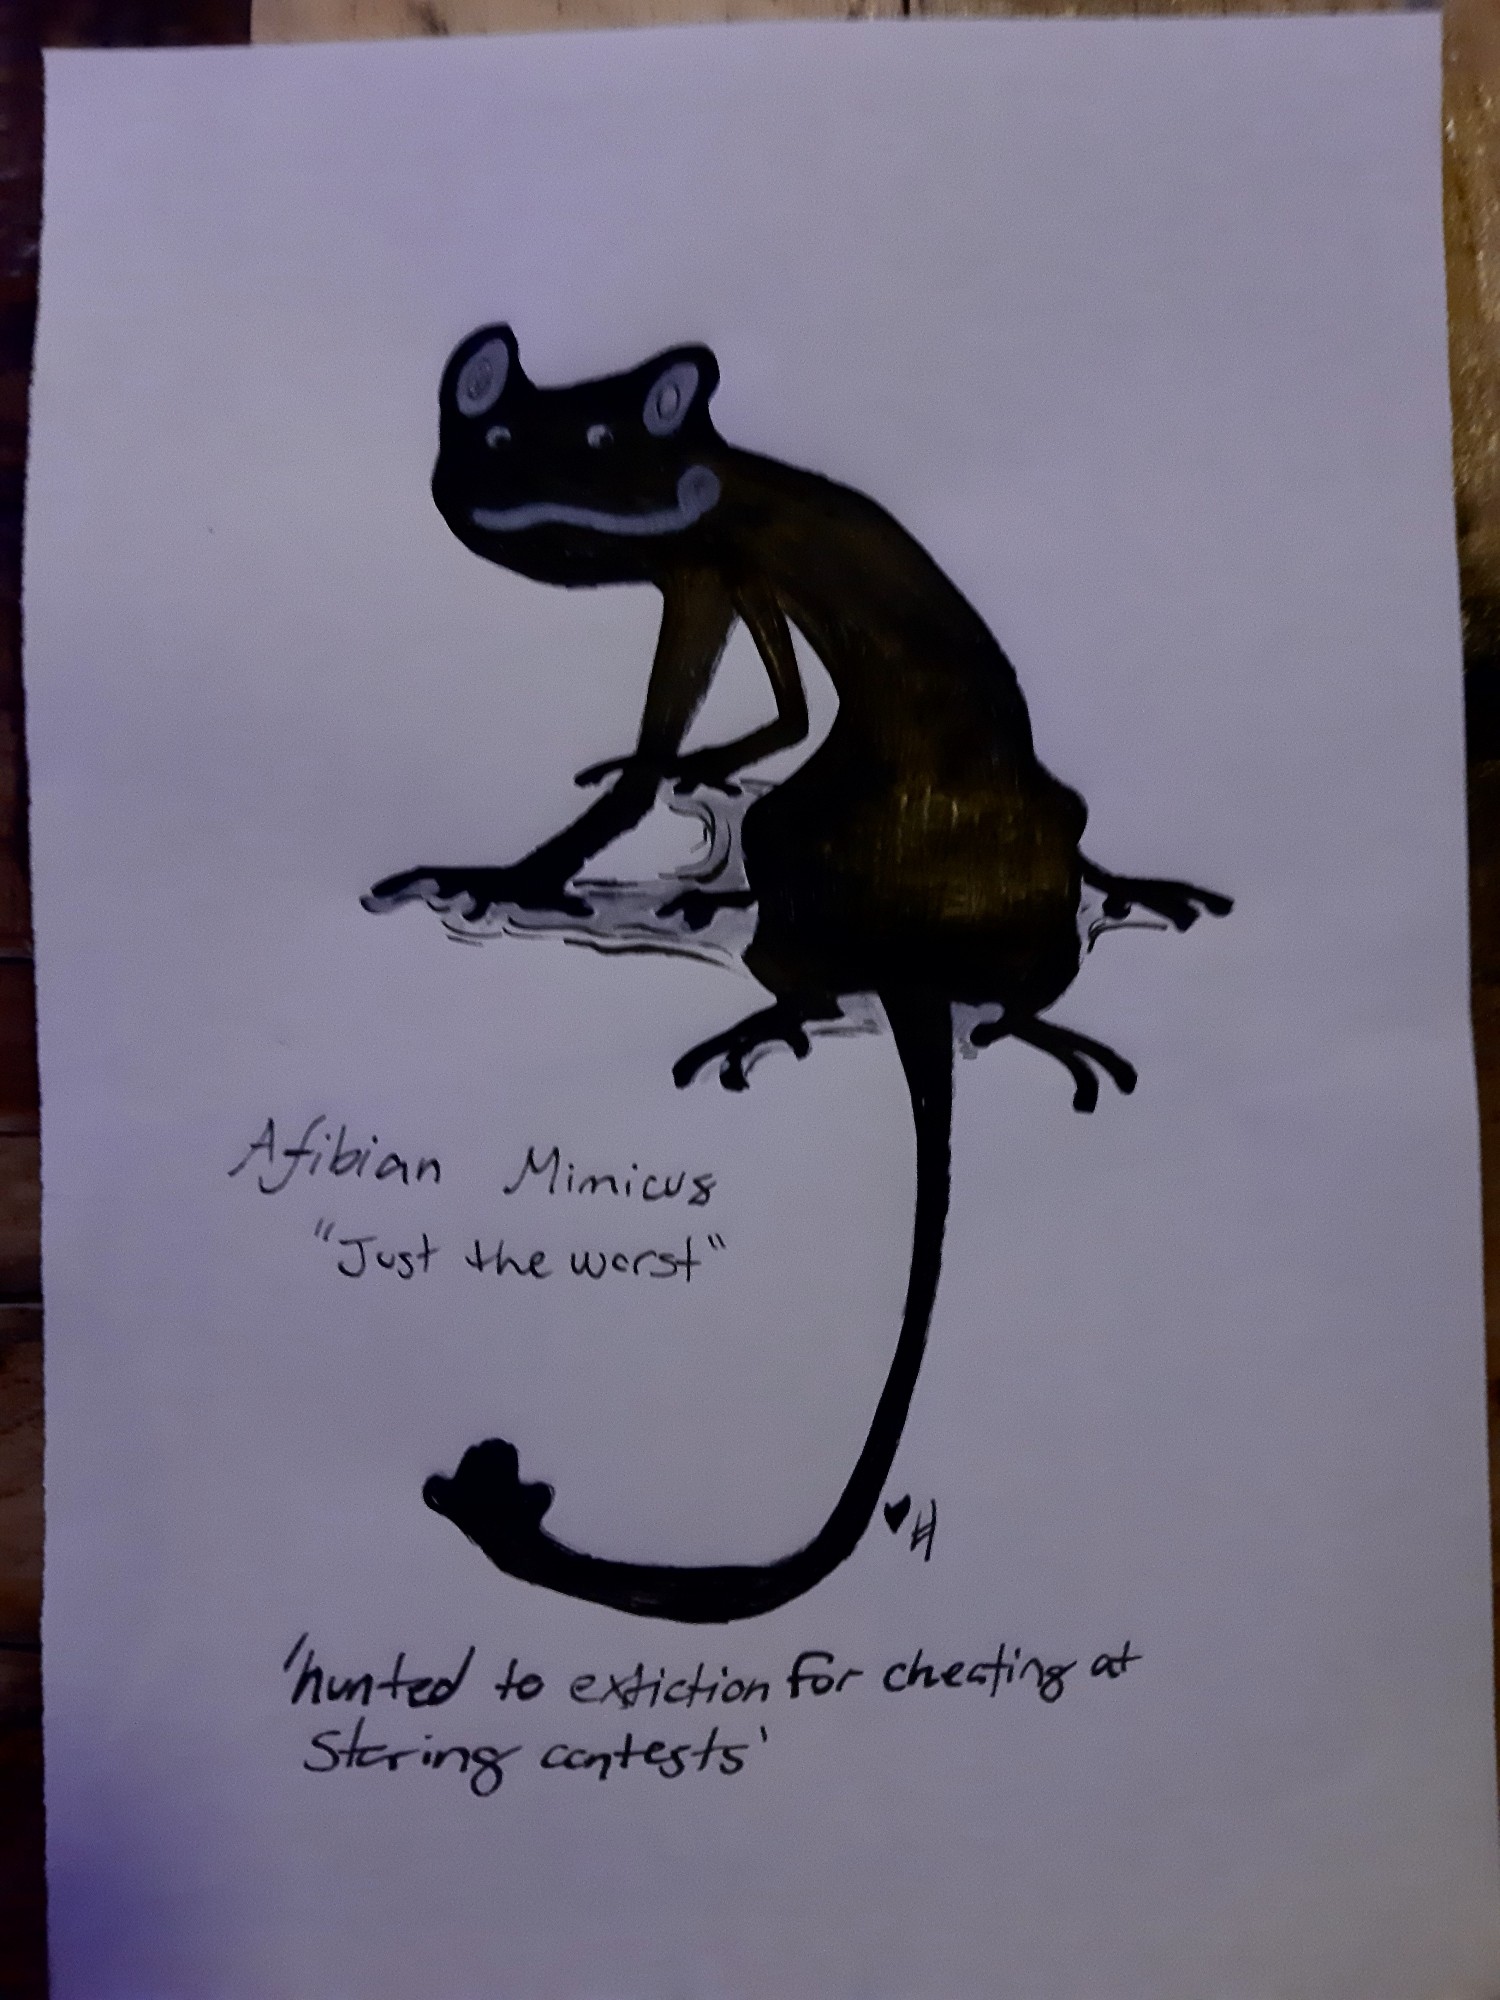 Afibian Mimicus
"Just the worst"
♥H
'hunted to extiction for cheating at
Staring contests'